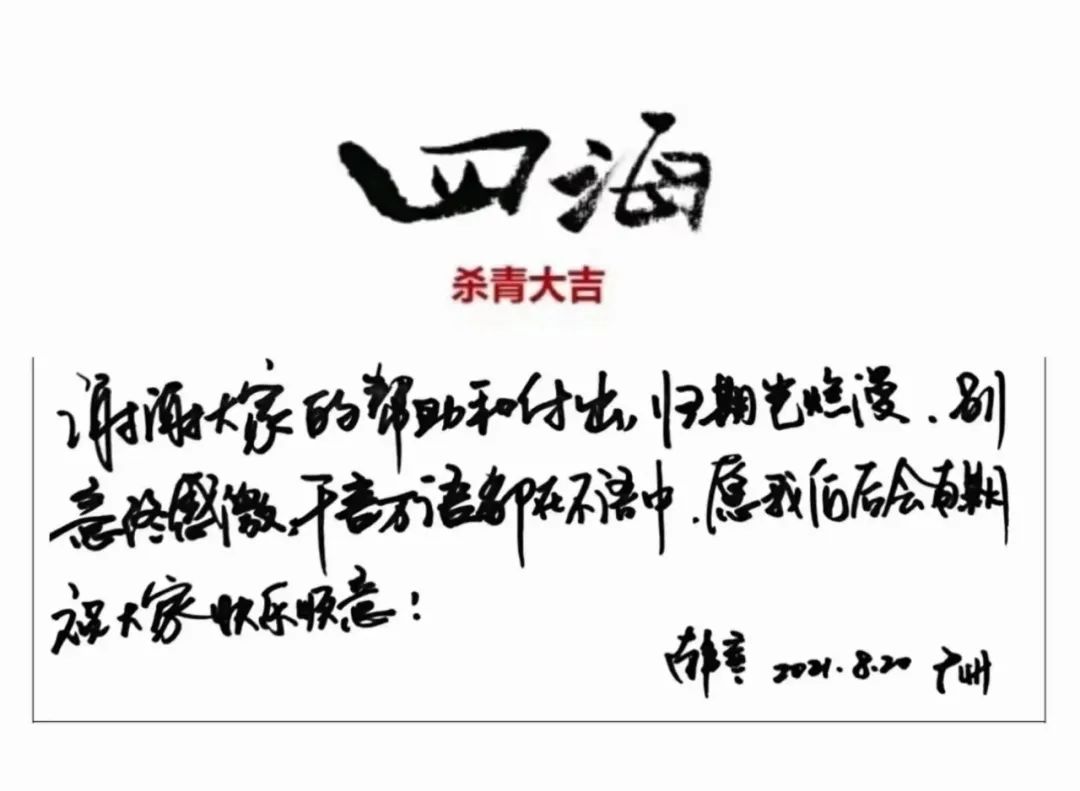 四海
杀青大吉
谢谢大家的帮助和付出,归期光灿漫、别
意终感激,千言万语都在不语中、愿我们后会有期
祝大家快乐顺意!
韩寒 2021.8.20 广州